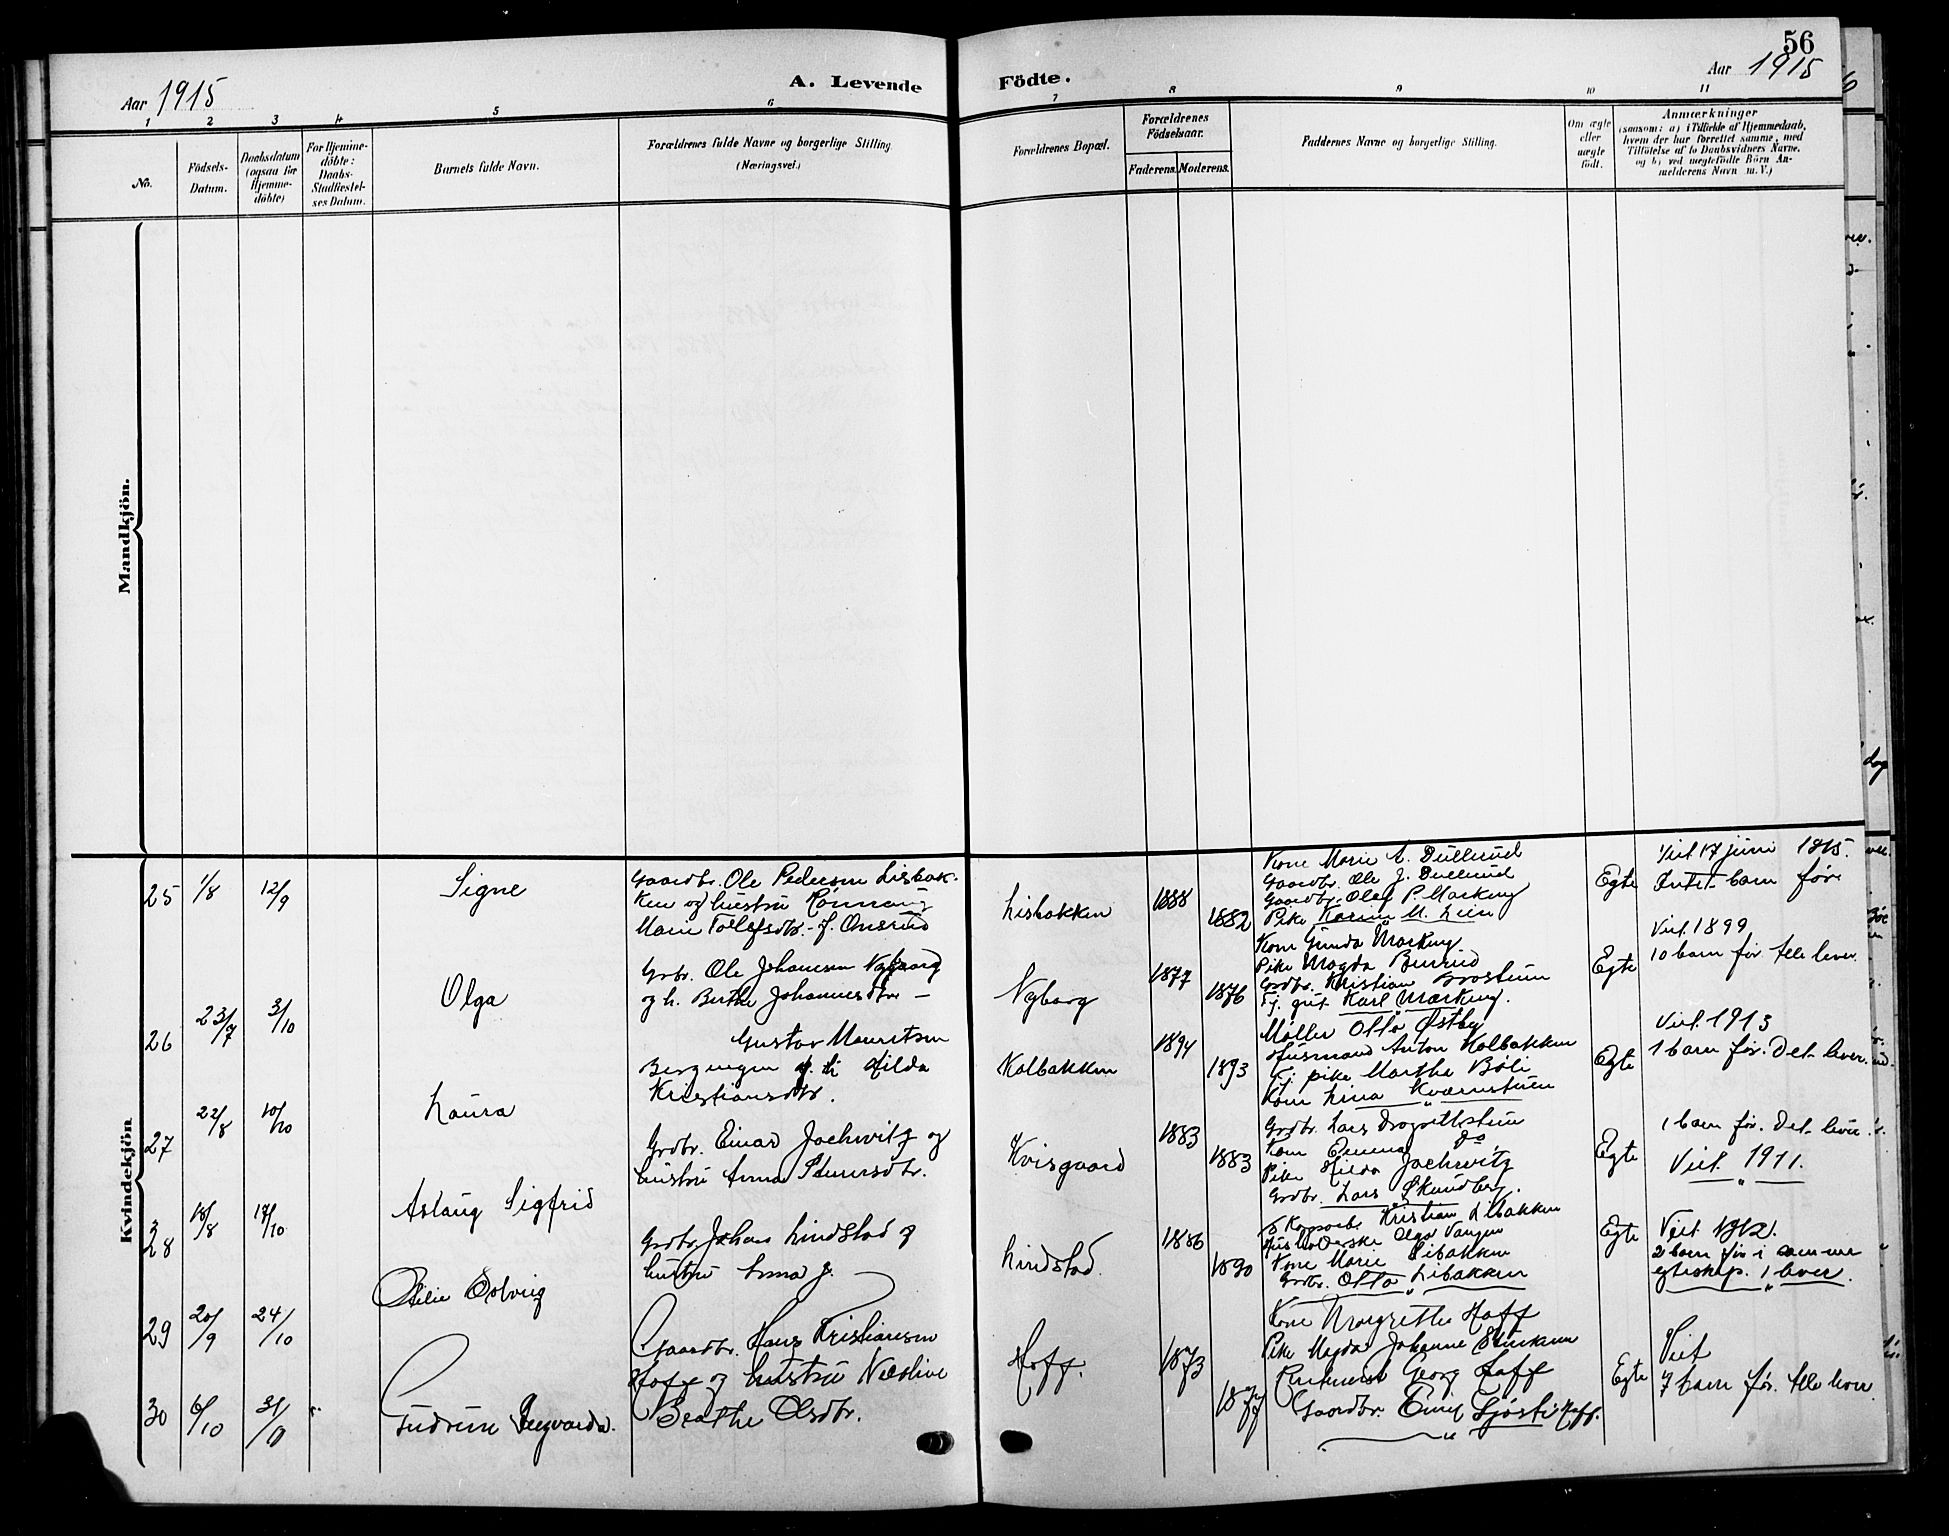 56
Aar 1915
A. Levende Födte.
Aar 1915
1 2 3 4 5 6 7 8 9 10 11
No.
Födsels-
Datum.
Daabsdatum
(ogsaa for
Hjemme-
döbte)
For Hjemme-
döbte:
Daabs-
Stadfæstel-
ses Datum.
Barnets fulde Navn.
Forældrenes fulde Navne og borgerlige Stilling
(Næringsvei.)
Forældrenes Bopæl.
Forældrenes
Födselsaar.
Faderens. Moderens.
Faddernes Navne og borgerlige Stilling.
Om ægte
eller
uægte
født.
Anmærkninger
(saasom: a) i Tilfælde af Hjemmedaab,
hvem der har forrettet samme, med
Tilföielse af to Daabsvidners Navne,
og b) ved uægtefödte Börn An-
melderens Navn m. V.)
Mandkjön.
Kvindekjön
25 1/8 12/9 Signe
Gaardbr. Ole Pedersen Lisbak-
ken og hustru Rønnaug
Marie Tollefsdtr. f. Onsrud
Lisbakken 1888 1882
Kone Marie A. Dullerud
Gaardbr. Ole J. Dullerud
Gaardbr. Olef P. Markeng
Pike Karen M. Lien
Egte
Viet 17 juni 1915.
Intet barn før
26 23/7 3/10 Olga
Grbr. Ole Johansen Nyborg
og h. Berthe Johannesdtr —
Nyborg 1877 1876
Kone Gunda Markeng.
Pike Magda Bururud
Grdbr. Kristian Brostuen
Tj. gut Karl Markeng.
Egte
Viet 1899
10 barn før. Alle lever.
27 22/8 10/10 Laura
Gustav Mauritsen
Bergengen og h. Hilda
Kristiansdtr.
Kalbakken 1894 1893
Møller Otto Østby
Husmand Anton Kolbakken
Tj. pike Marthe Bøli
Kone Lina Kværnstuen
Egte
Viet 1913
1 barn før. Det lever.
28 18/8 17/10 Aslaug Sigfrid
Grdbr. Einar Jachwitz og
hustru Anna Iversdtr.
Kvisgaard 1883 1883
Grdbr. Lars Drogsethstuen
Kone Emma do
Pike Hilda Jachwitz
Grdbr. Lars Skundberg.
Egte
1 barn før. Det lever.
Viet 1911.
29 20/9 24/10 Otilie Solveig
Grdbr. Johan Lindstad og
hustru Anna J.
Lindstad. 1886 1890
Kristian Libakken
Olga Vangen
Kone Marie Libakken
Grdbr. Otto Libakken
Egte
Viet 1912.
2 barn før i samme
egteskap. 1 lever.
30 6/10 31/10 Gudrun Ingvarda.
Gaardbr. Hans Kristiansen
Hoff og hustru Nicoline
Beathe Olsdtr.
Hoff. 1873 1877
Kone Margrethe Hoff
Pike Magda Johanne
Georg Hoff
Gaardbr. Emil Sjøsti Hoff.
Egte
Viet
7 barn før. Alle lever